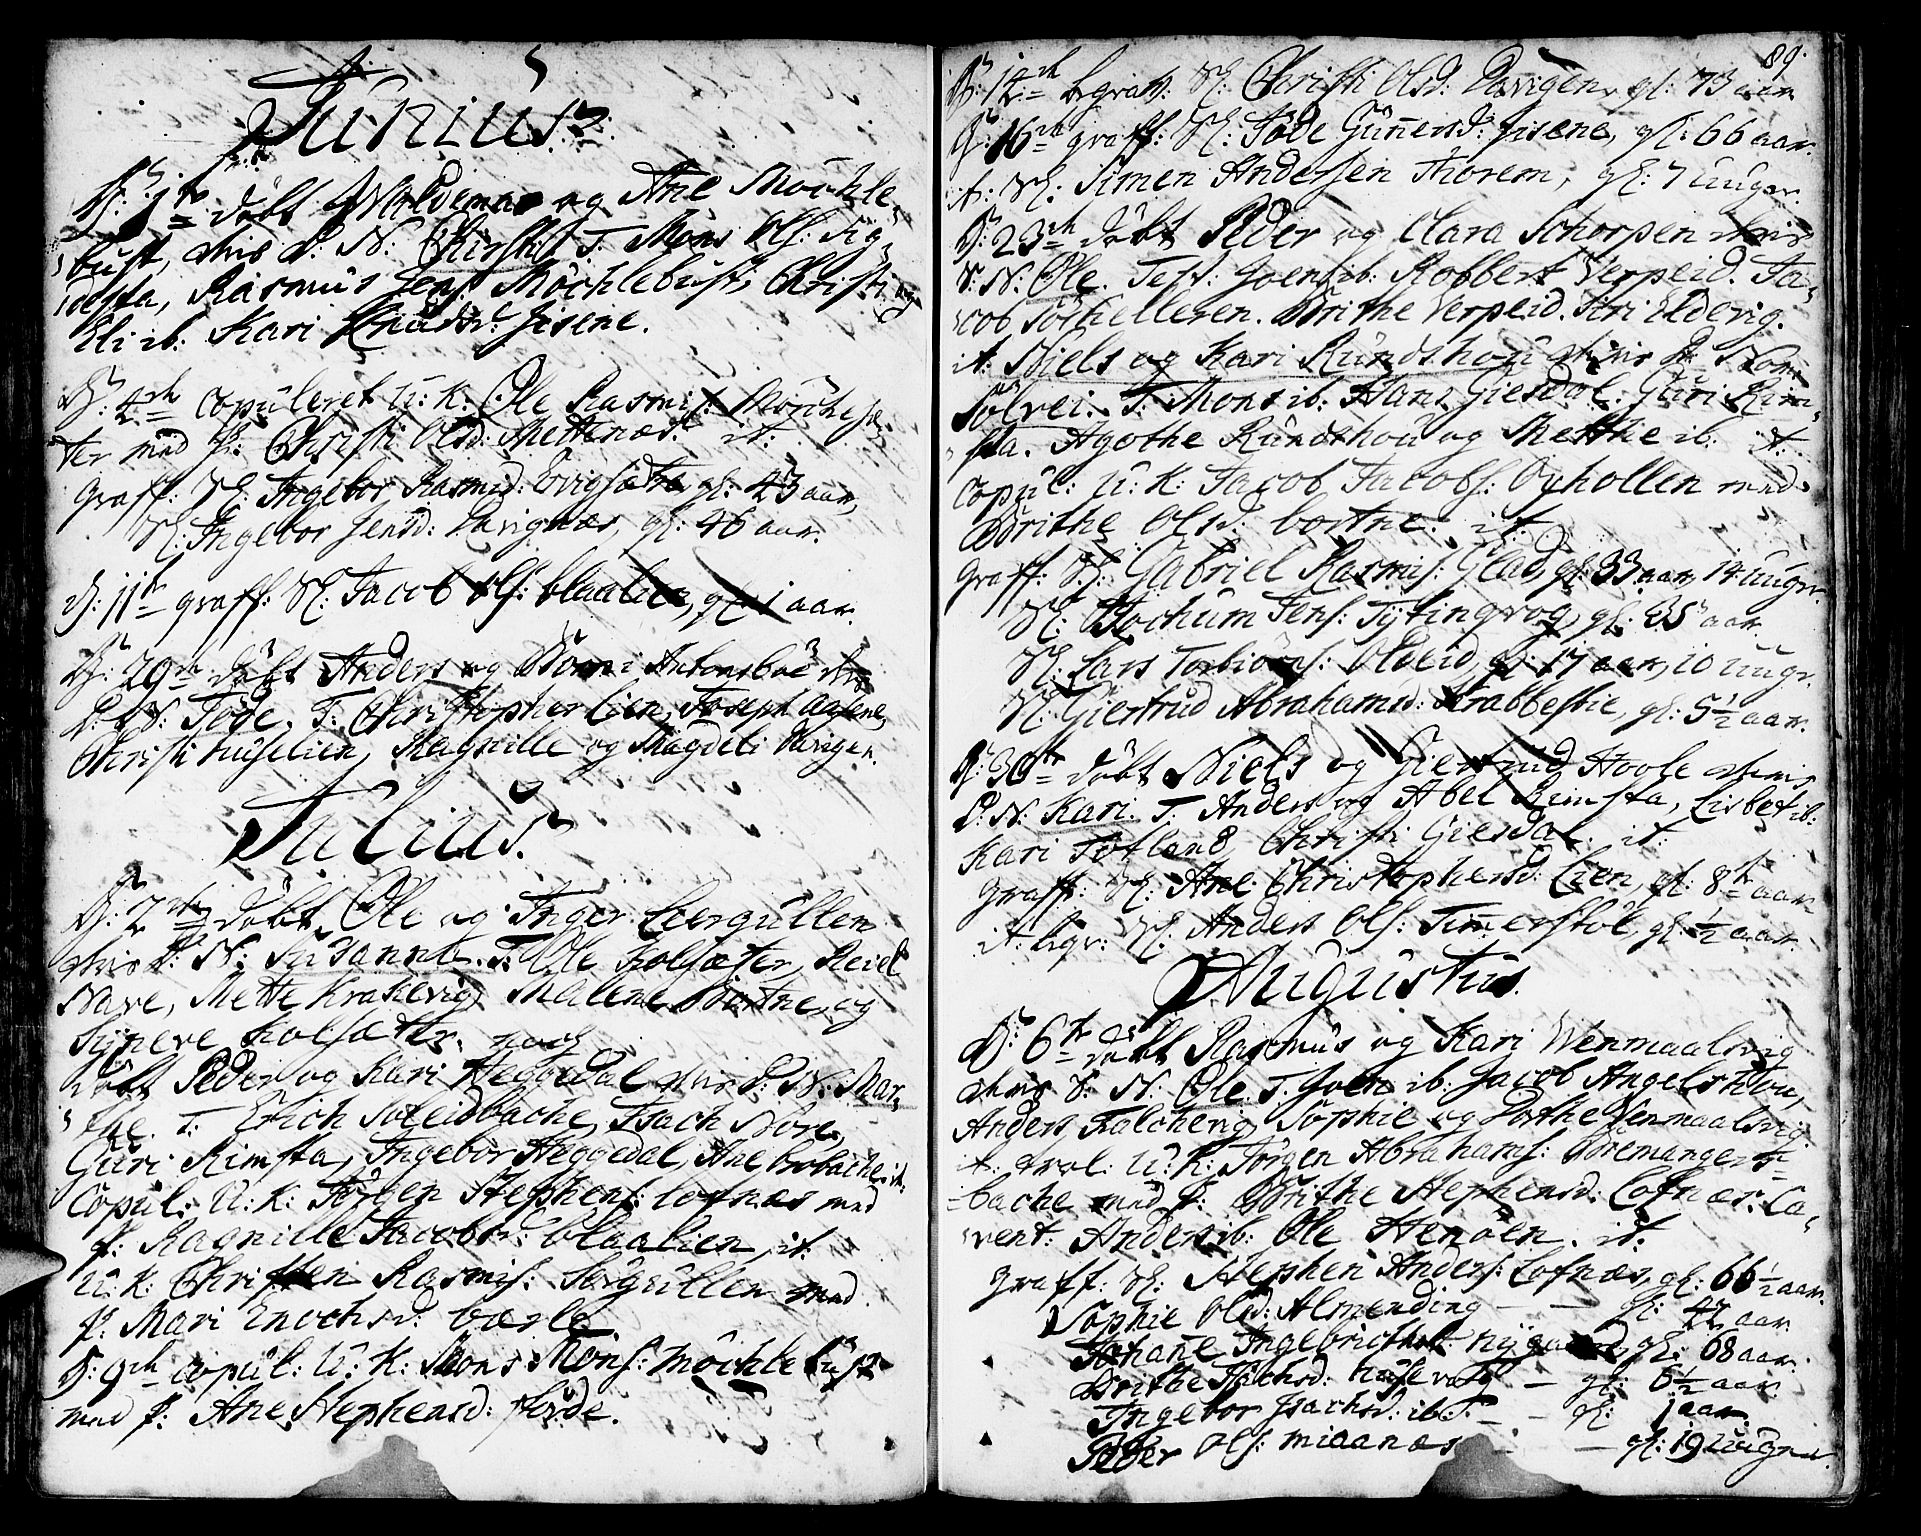 Junius.
D: 1te döbt Woldemar og Ane Möchle,,
bust, dris D. N: Christi T. Mons Ols: Sig,,
desta, Rasmus Jens: Möchlebust, Christi og
Eli ib: Kari Knudsd: Hisene.
D: 4th copuleret U: K: Ole Rasmis:
ter med P: Christi Olsd: Mettenæs. it:
Graff: Sl: Ingebor Rasmisd: gl: 43 aar,
Sl: Ingebor Jensd: Davignæs, gl: 46 aar.
D: 11te graff: Sl: Jacob Ols: blaalien, gl: 1 aar.
D: 29de döbt Anders og Nonni Antonsböe dris
D. N: Töde. T. Christopher Lien, Joseph Aasene,
Christi Huselien, Ragnille og Magdeli Davigen.
Julius.
D: 2den döbt Ole og Inger Leergullen
dris D: N: Susanna. T. Ole Kolsæter, Reiel
Nave, Mette Krakevig, Malene Bortne, og
Syneve Kolsæter. noch
döbt Peder og Kari Heggedal dris D: N: Mar,,
the. T. Erich Soleidbache, Isach Nore,
Guri Rimsta, Ingebor Heggedal, Ane bobache. it.
Copul: U: K: Torben Stephens: Lofnæs med
P: Ragnille Jacobsd: blaalien, it:
U: K: Christen Rasmis: Sorgullen med
P: Mari Enochsd: barle
D: 9de copul: U: K: Mons Mons: Möchlebust
med P: Ane Stephensd: Förde.
89.
D: 12te begrav: Sl: Christi Olsd: Davigen, gl: 73 aar
D: 16de graff: Sl: Töde Gunnersd: Hisene, gl: 66 aar.
it. Sl: Simen Andersen Thorem, gl: 7 uuger.
D: 23de döbt Peder og Clara Schorpen dris
D. N: Ole. Test. Joen ib: Robbert Verpeid. Ja,,
cob Töchelleren. Brithe Verpeid. Siri Eldevig.
it: Niels og Kari Rundshou dris D: Nom:
Sölvei. T. Mons ib: Hans Giesdal. Guri Rim,,
sta. Agothe Rundshou og Mette ib. it.
Copul: U: K: Jacob Jacobs: Oyhollen med
Brithe Olsd: bortne. it
Graff: Sl: Gabriel Rasmis: Glad, gl: 33 aar, 14 uuger.
Sl: Jochum Jens: Tytingvog, gl: 35 aar
Sl: Lars Torbiörns: Oldeid, gl: 17 aar, 10 uuger.
Sl: Giertrud Abrahamsd: Krabbestie, gl: 5½ aar.
D: 30te döbt Niels og Giertrud Hoole dris
D: N: Kari. T. Anders og Abel Rimsta, Lisbet ib:
Kari Totland, Christi Giesdal. it.
Graff: Sl: Ane Christophersd: Lien, gl: 8te aar.
it. begr: Sl: Anders Ols: Timmerstöl, gl: ½ aar.
Augustus.
D: 6te döbt Rasmus og Kari Wenmaalsvig
dris D. N: Ole. T. Joen ib: Jacob Angelshou,
Anders Falchevig, Sophie og Dorthe Venmaalsvig.
it. trol: U: K: Jörgen Abrahams: Bremangers-
bache med P: Brithe Stephensd: Lofnæs. Ca,,
vent: Anders ib: Ole Stenöen. it.
Graff: Sl: Stephen Anders: Lofnæs, gl: 66½ aar.
Sophie Olsd: Almending - - gl: 42 aar
Johane Ingebricthsd: nygaard, gl: 68 aar.
Brithe Isachsd: Husevog - gl: 6½ aar
Ingebor Isachsd: ib: - - gl: 1 aar.
Peder Ols: miaanæs - gl: 19 uuger.